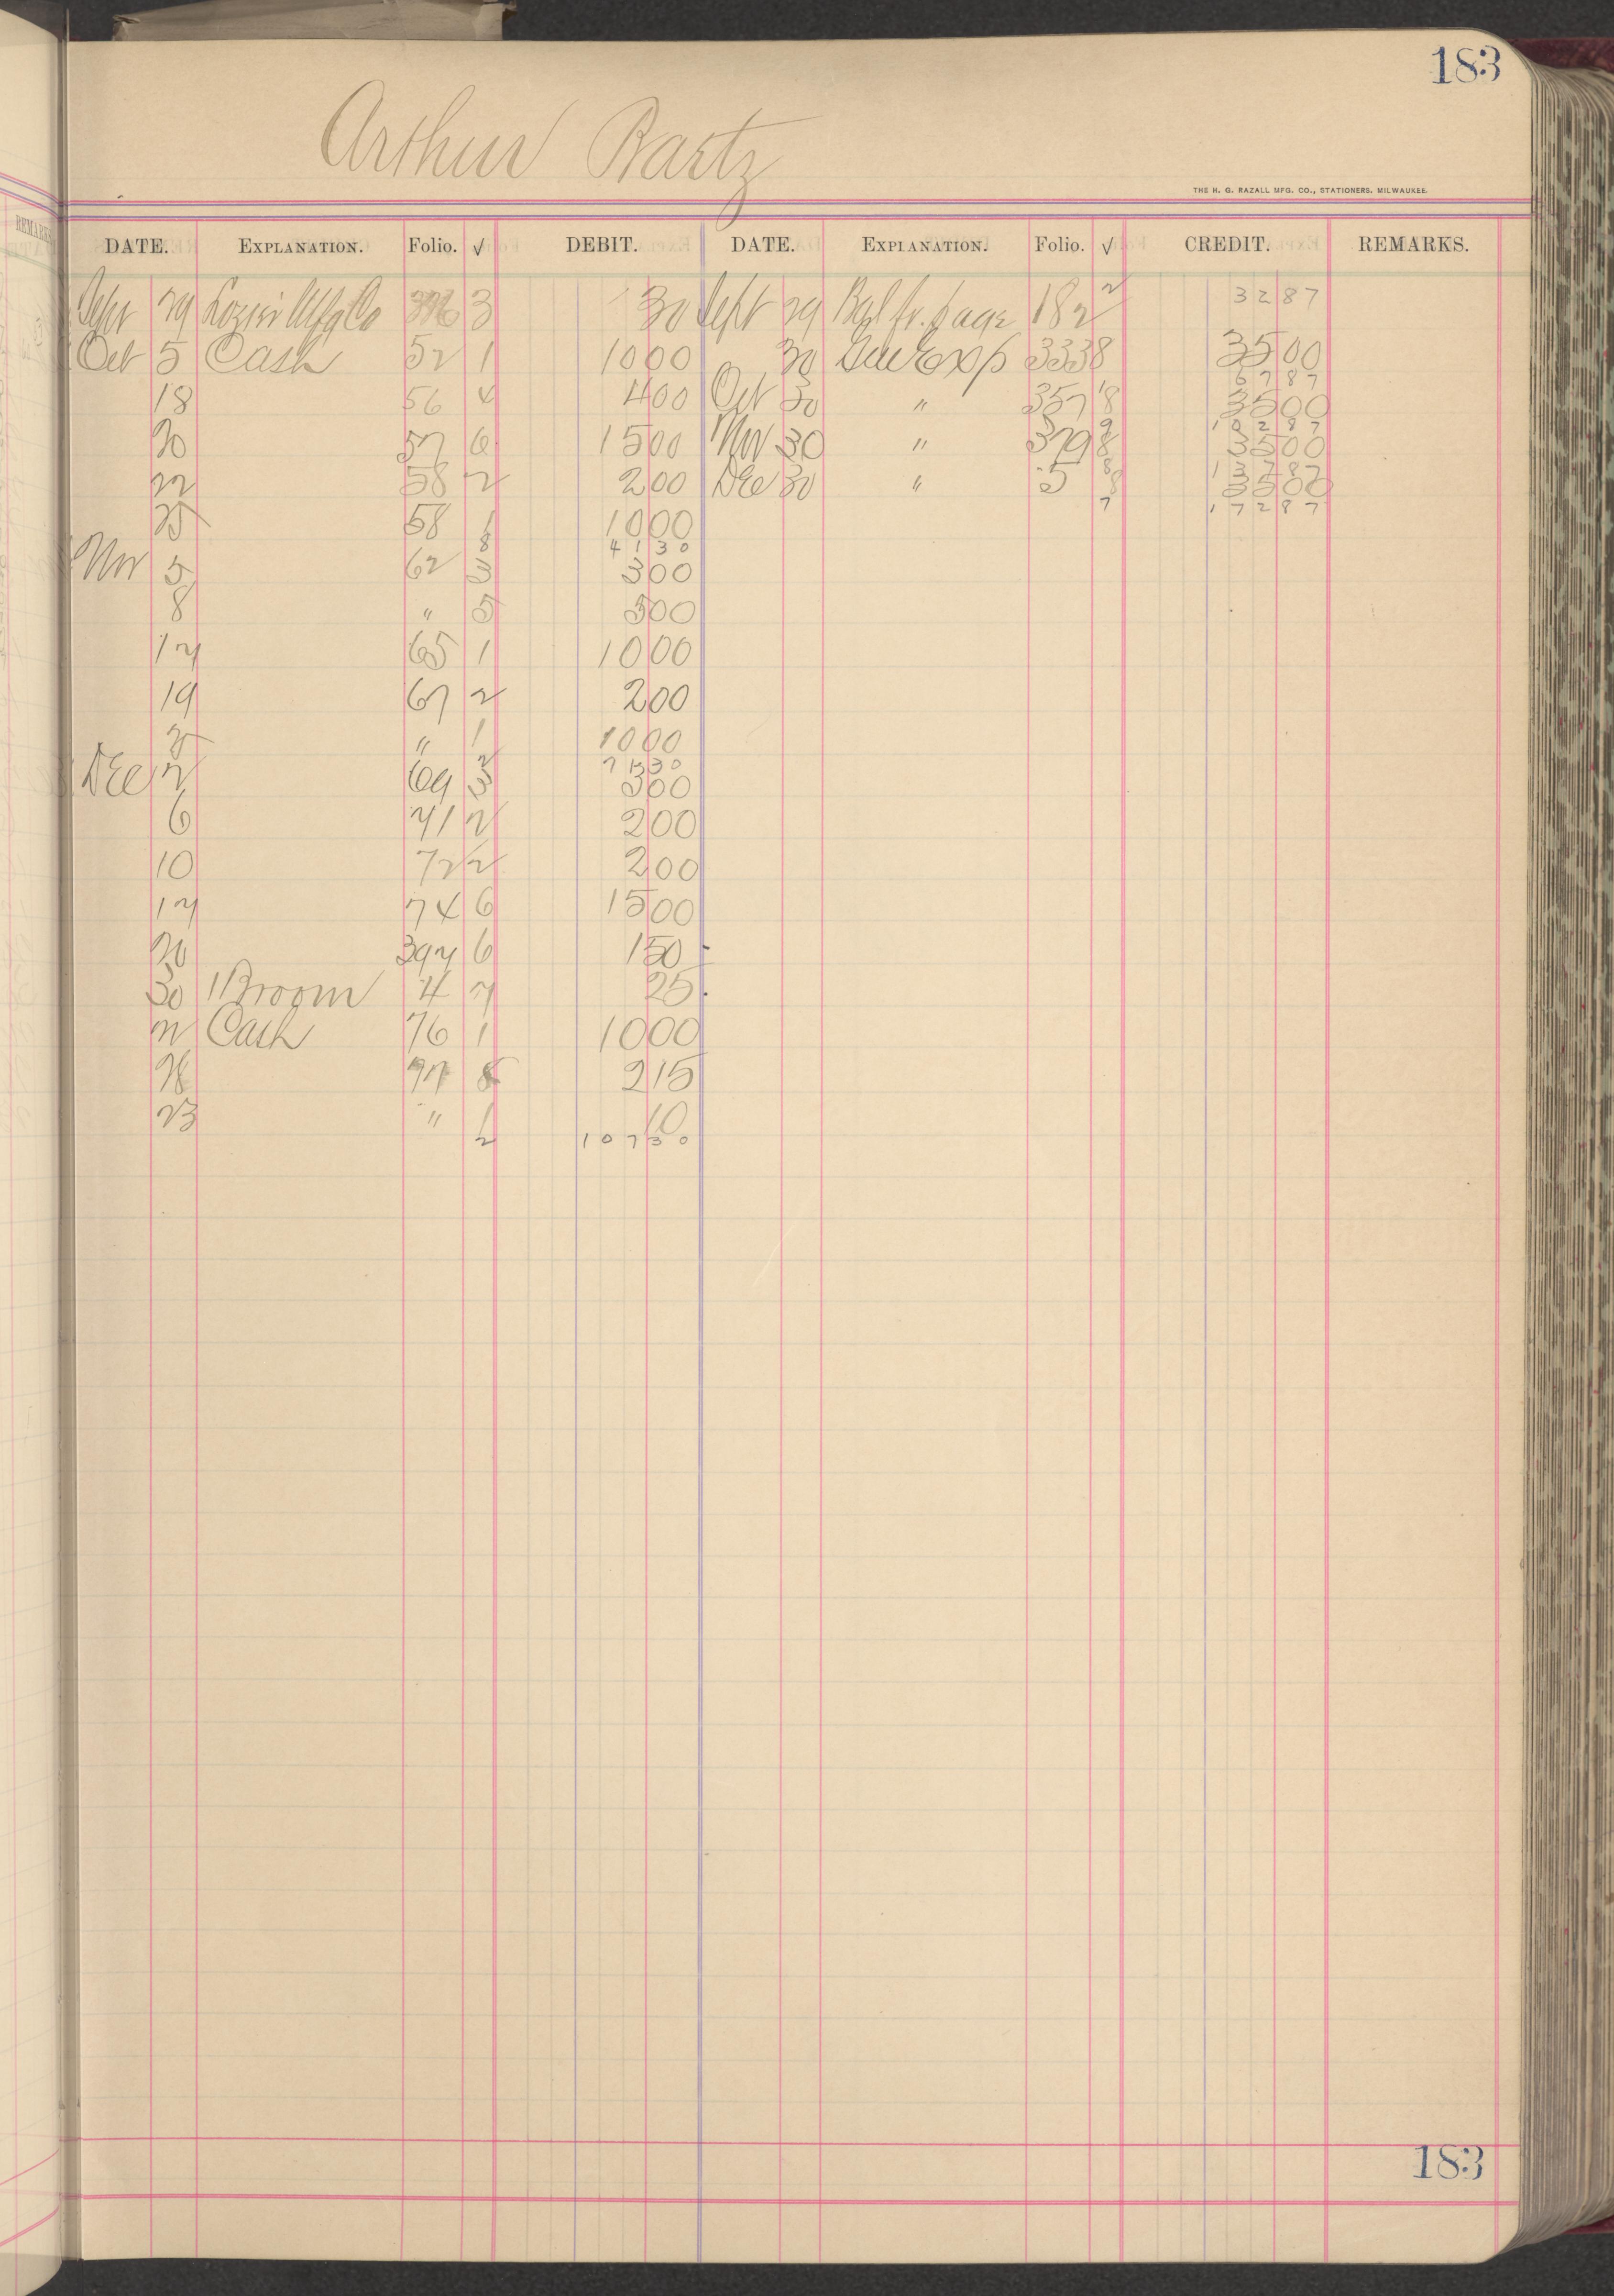 183
Arthur Bartz
THE H. G. RAZALL MFG. CO., STATIONERS, MILWAUKEE.
REMARKS
DATE. EXPLANATION. Folio. √ DEBIT. DATE. EXPLANATION. Folio. √ CREDIT. REMARKS.
Sept 29 Lozier Mfg Co 3 30 Sept 29 Bal fr. page 182 2 3287
Oct 5 Cash 52 1 1000 30 Gen Exp 333 8 3500
6787
18 56 4 400 Oct 30 " 357 8 3500
10287
20 57 6 1500 Nov 30 " 379 8 3500
13787
22 58 2 200 Dec 30 " 5 8 3500
17287
25 58 1 1000
8 4130
Nov 5 62 3 300
8 " 5 500
17 65 1 1000
19 67 2 200
" 1 1000
2 7130
Dec 2 69 3 300
6 71 2 200
10 72 2 200
17 74 6 1500
20 397 6 150
30 1 Broom 4 7 25
22 Cash 76 1 1000
8 215
23 " 1 10
2 10730
183